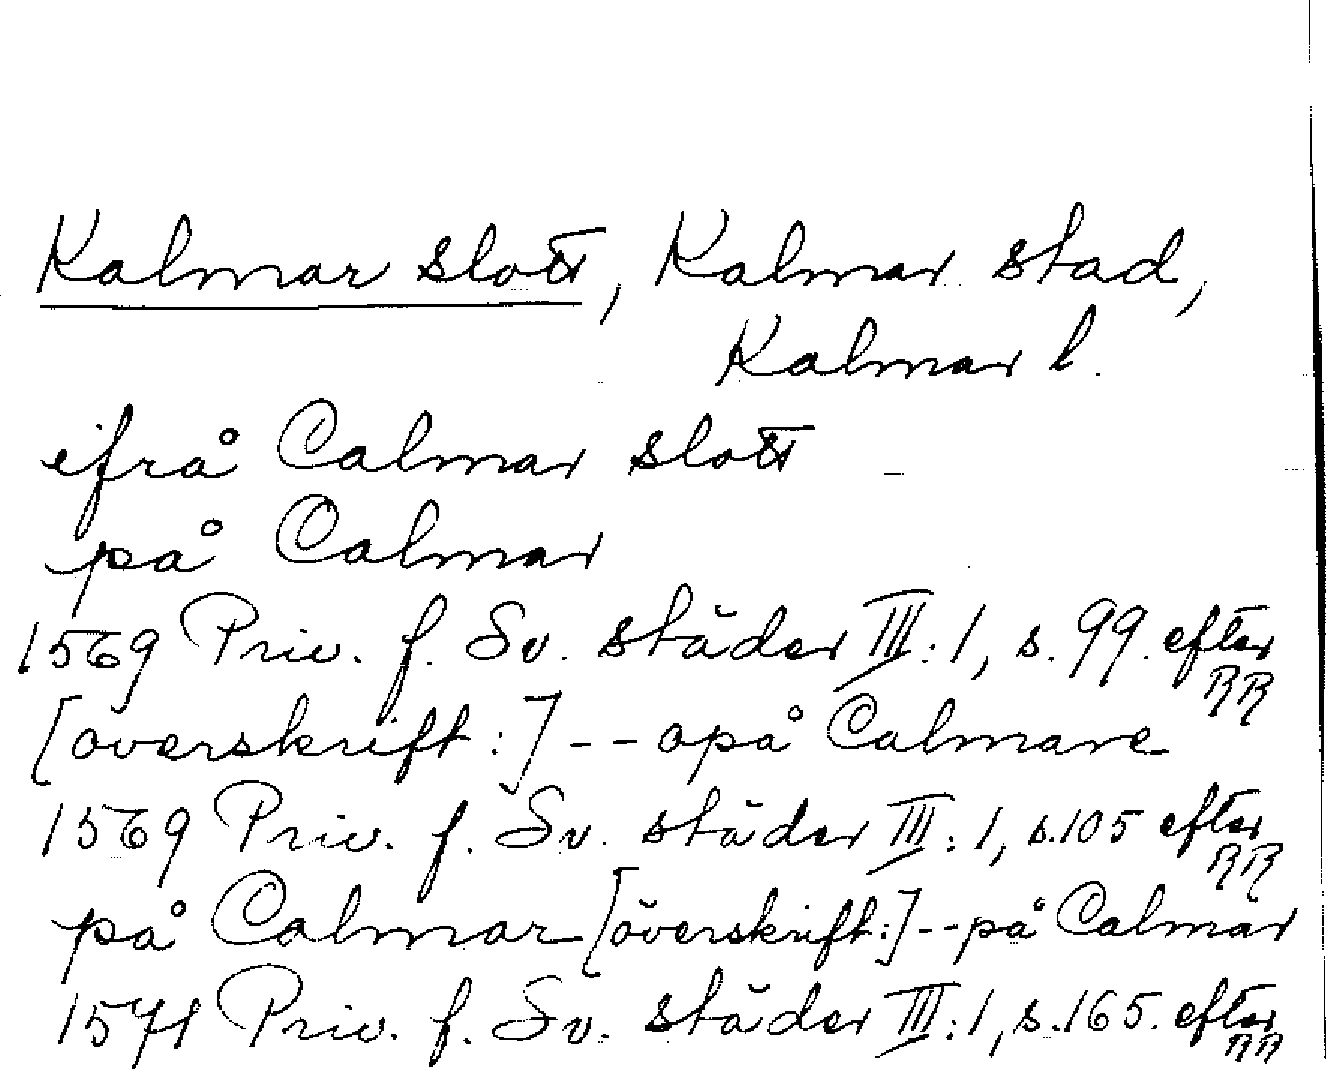 Kalmar slott, Kalmar stad,
Kalmar l.
ifrå Calmar slott
på Calmar
1569 Priv. f. Sv. städer III:1, s. 99. efter RR
[överskrift:] -- opå Calmare
1569 Priv. f. Sv. städer III:1, s. 105 efter RR
på Calmar [överskrift:] -- på Calmar
1571 Priv. f. Sv. städer III:1, s. 165. efter RR